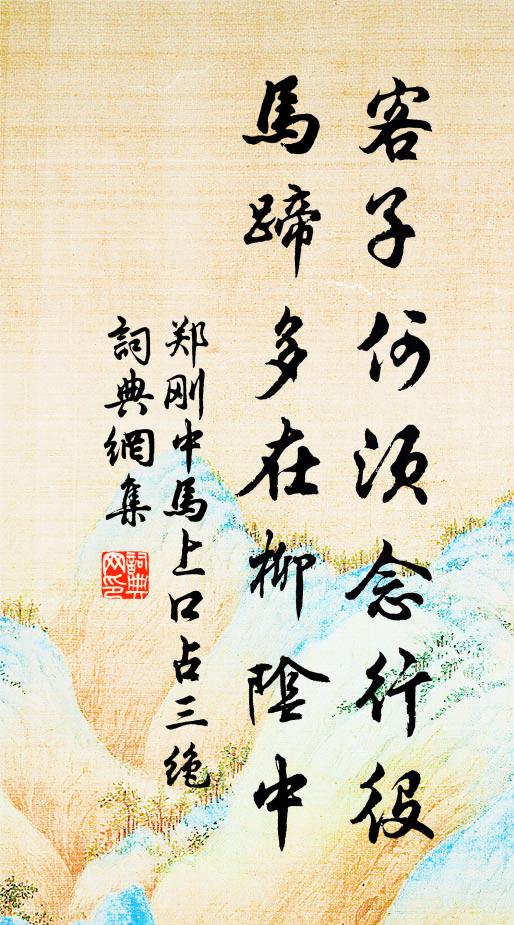 客子何须念行役
馬蹄多在柳陰中
郑刚中馬上口占三绝
詞典網集
詞典